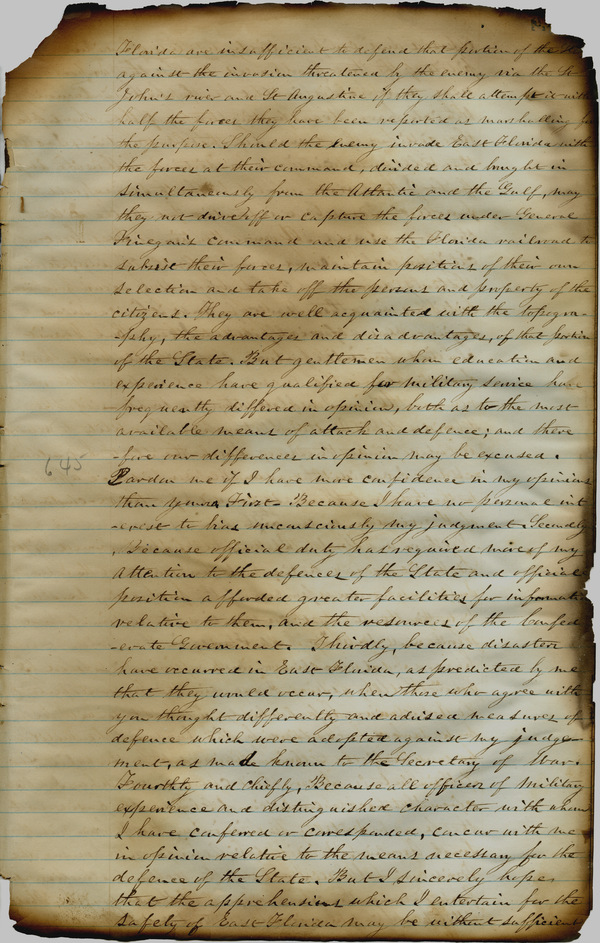 Florida are insufficient to defend that portion of the
against the invasion threatened by the enemy via the St
John's river and St Augustine, if they shall attempt it with
half the forces they have been reported as marshalling for
the purpose. Should the enemy invade East Florida with
the forces at their command, divided and brought in
simultaneously from the Atlantic and the Gulf, may
they not drive off or capture the forces under General
Finegan's command and use the Florida railroad to
subsist their forces, maintain positions of their own
selection and take off the persons and property of the
citizens. They are well acquainted with the topogra-
-phy, the advantages and disadvantages, of that portion
of the State. But gentlemen whom education and
experience have qualified for military service have
frequently differed in opinion, both as to the most
available means of attack and defence; and there
-fore our differences in opinion may be excused.
645
Pardon me if I have more confidence in my opinions
than yours, First- Because I have no personal int
-erest to bias unconsciously my judgment. Secondly
, Because official duty has required more of my
attention to the defences of the State and official
position afforded greater facilities for informati
relative to them, and the resources of the Confed
-erate Government. Thirdly, because disasters
have occurred in East Florida, as predicted by me
that they would occur, when those who agree with
you thought differently and advised measures of
defence which were adopted against my judge-
ment, as made known to the Secretary of War.
Fourthly and chiefly, Because all officers of military
experience and distinguished character with whom
I have conferred or corresponded, concur with me
in opinion relative to the means necessary for the
defence of the State. But I sincerely hope,
that the apprehensions which I entertain for the
safety of East Florida may be without sufficient